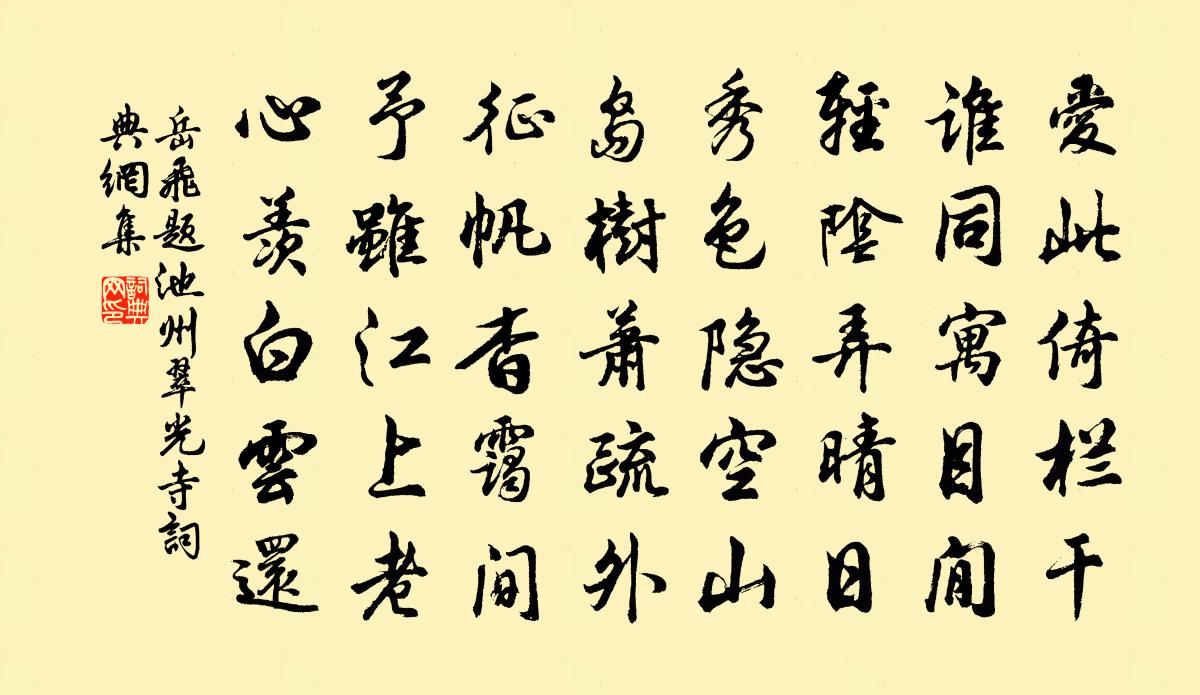 愛此倚栏干
誰同寓目閒
輕陰弄晴日
秀色隐空山
島樹蕭疏外
征帆杳靄间
予雖江上老
心羨白雲還
岳飛题池州翠光寺詞
典網集
詞典
网印